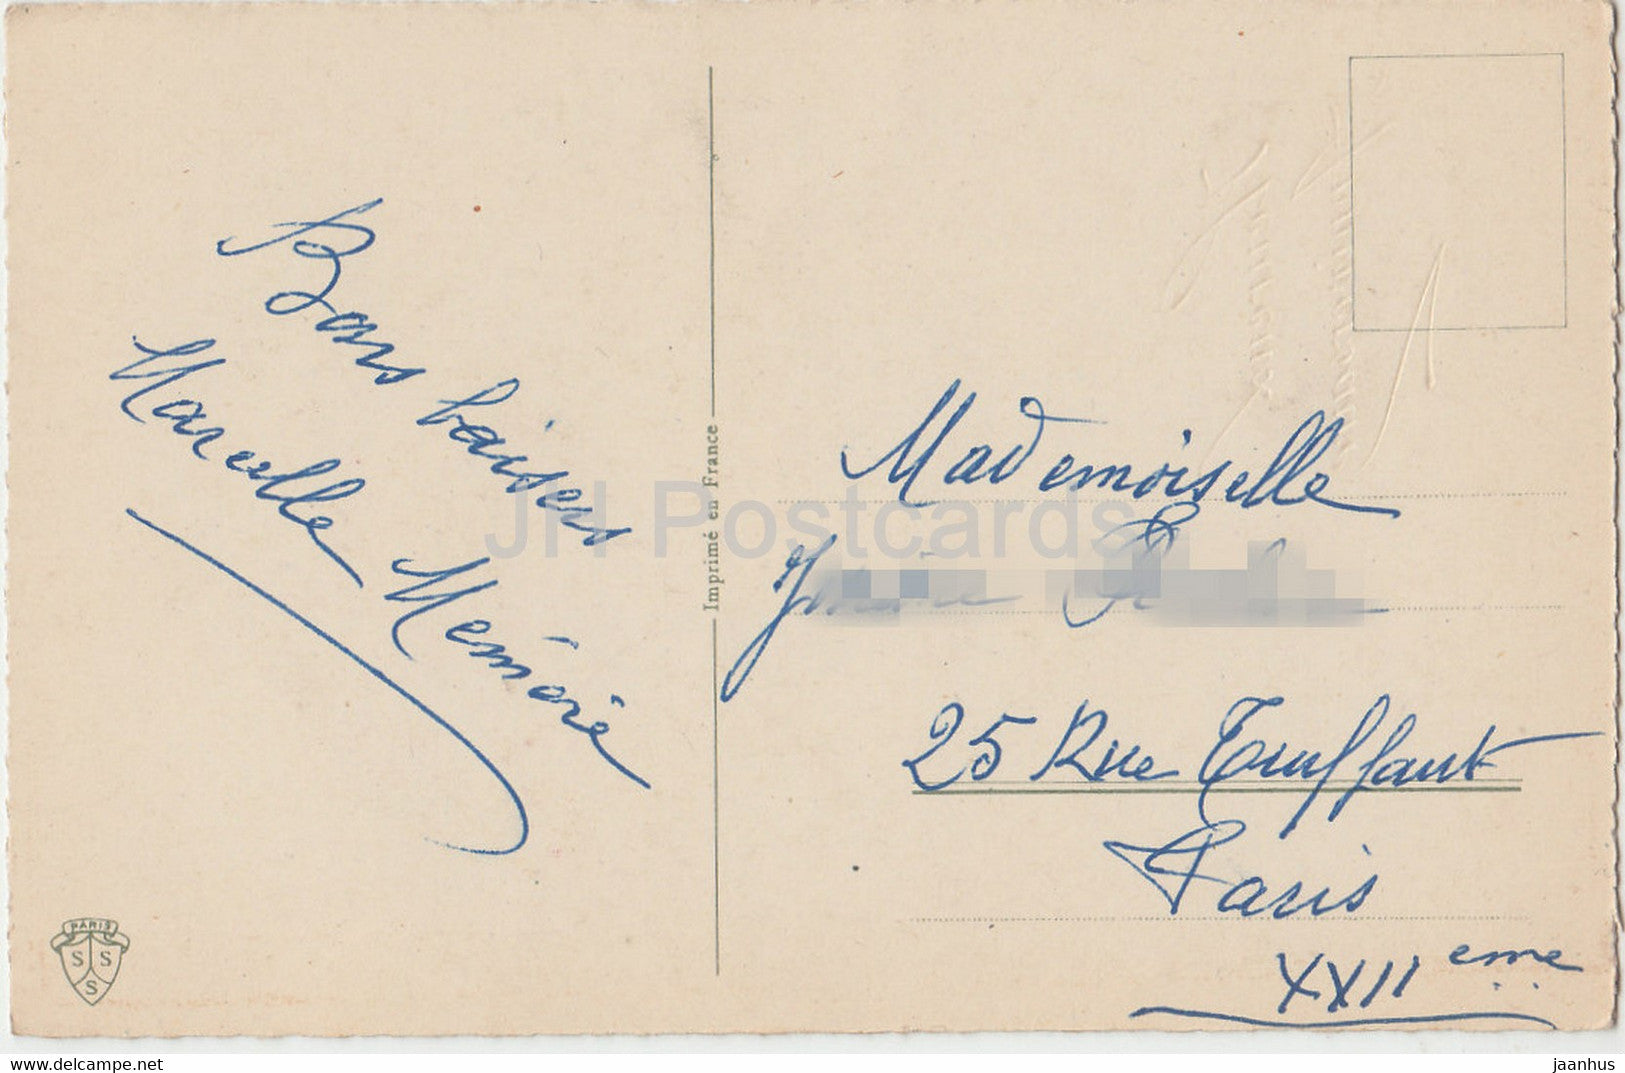 Bons baisers
Marcelle Mémoire
Imprimé en France
Mademoiselle
25 Rue Truffaut
Paris
XXII eme
PARIS
S S
S
JH Postcards
delcampe.net
jaanhus